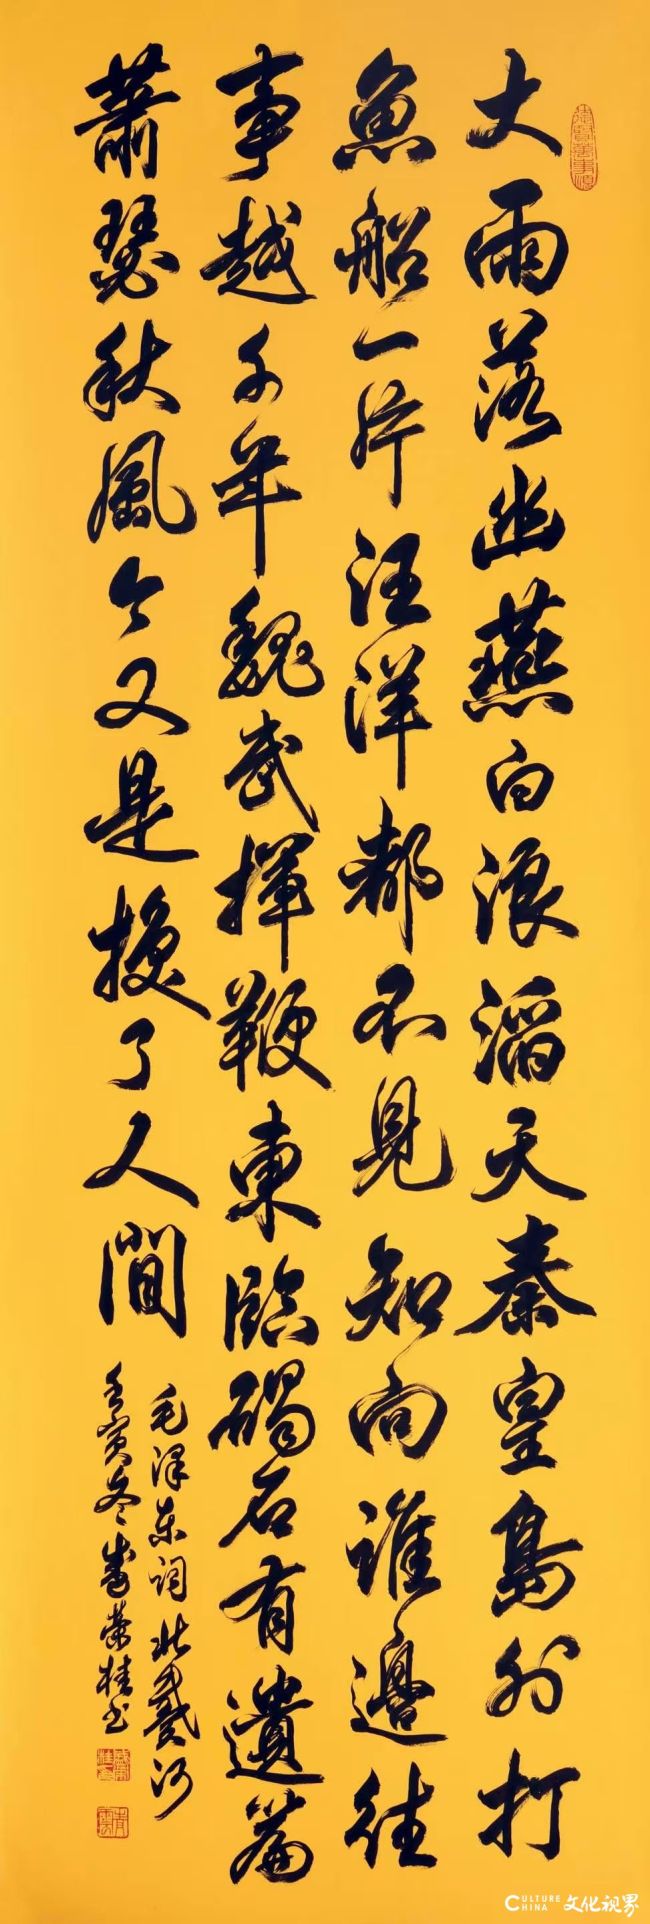 大雨落幽燕白浪滔天秦皇島外打
魚船一片汪洋都不見知向誰邊往
事越千年魏武揮鞭東臨碣石有遺篇
蕭瑟秋風今又是換了人間
毛泽东词北戴河
壬寅冬盛荣桂书
CULTURE CHINA 文化视界